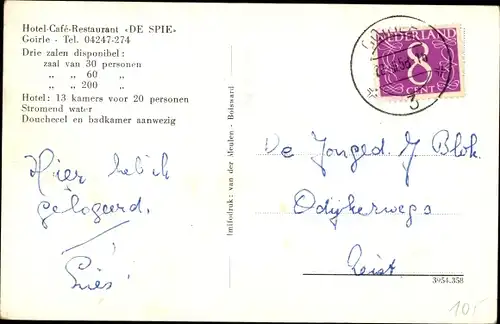 Hotel-Café-Restaurant «DE SPIE»
Goirle - Tel. 04247-274
Drie zalen disponibel:
zaal van 30 personen
„ „ 60 „
„ „ 200 „
Hotel: 13 kamers voor 20 personen
Stromend water
Doucheccel en badkamer aanwezig
Hier heb ik
gelogeerd.
Imilodruk: van der Meulen - Bolsward
NEDERLAND
8
CENT
3
De Jonged. J. Blok.
Odijkerweg
Zeist
3954.358
10,-